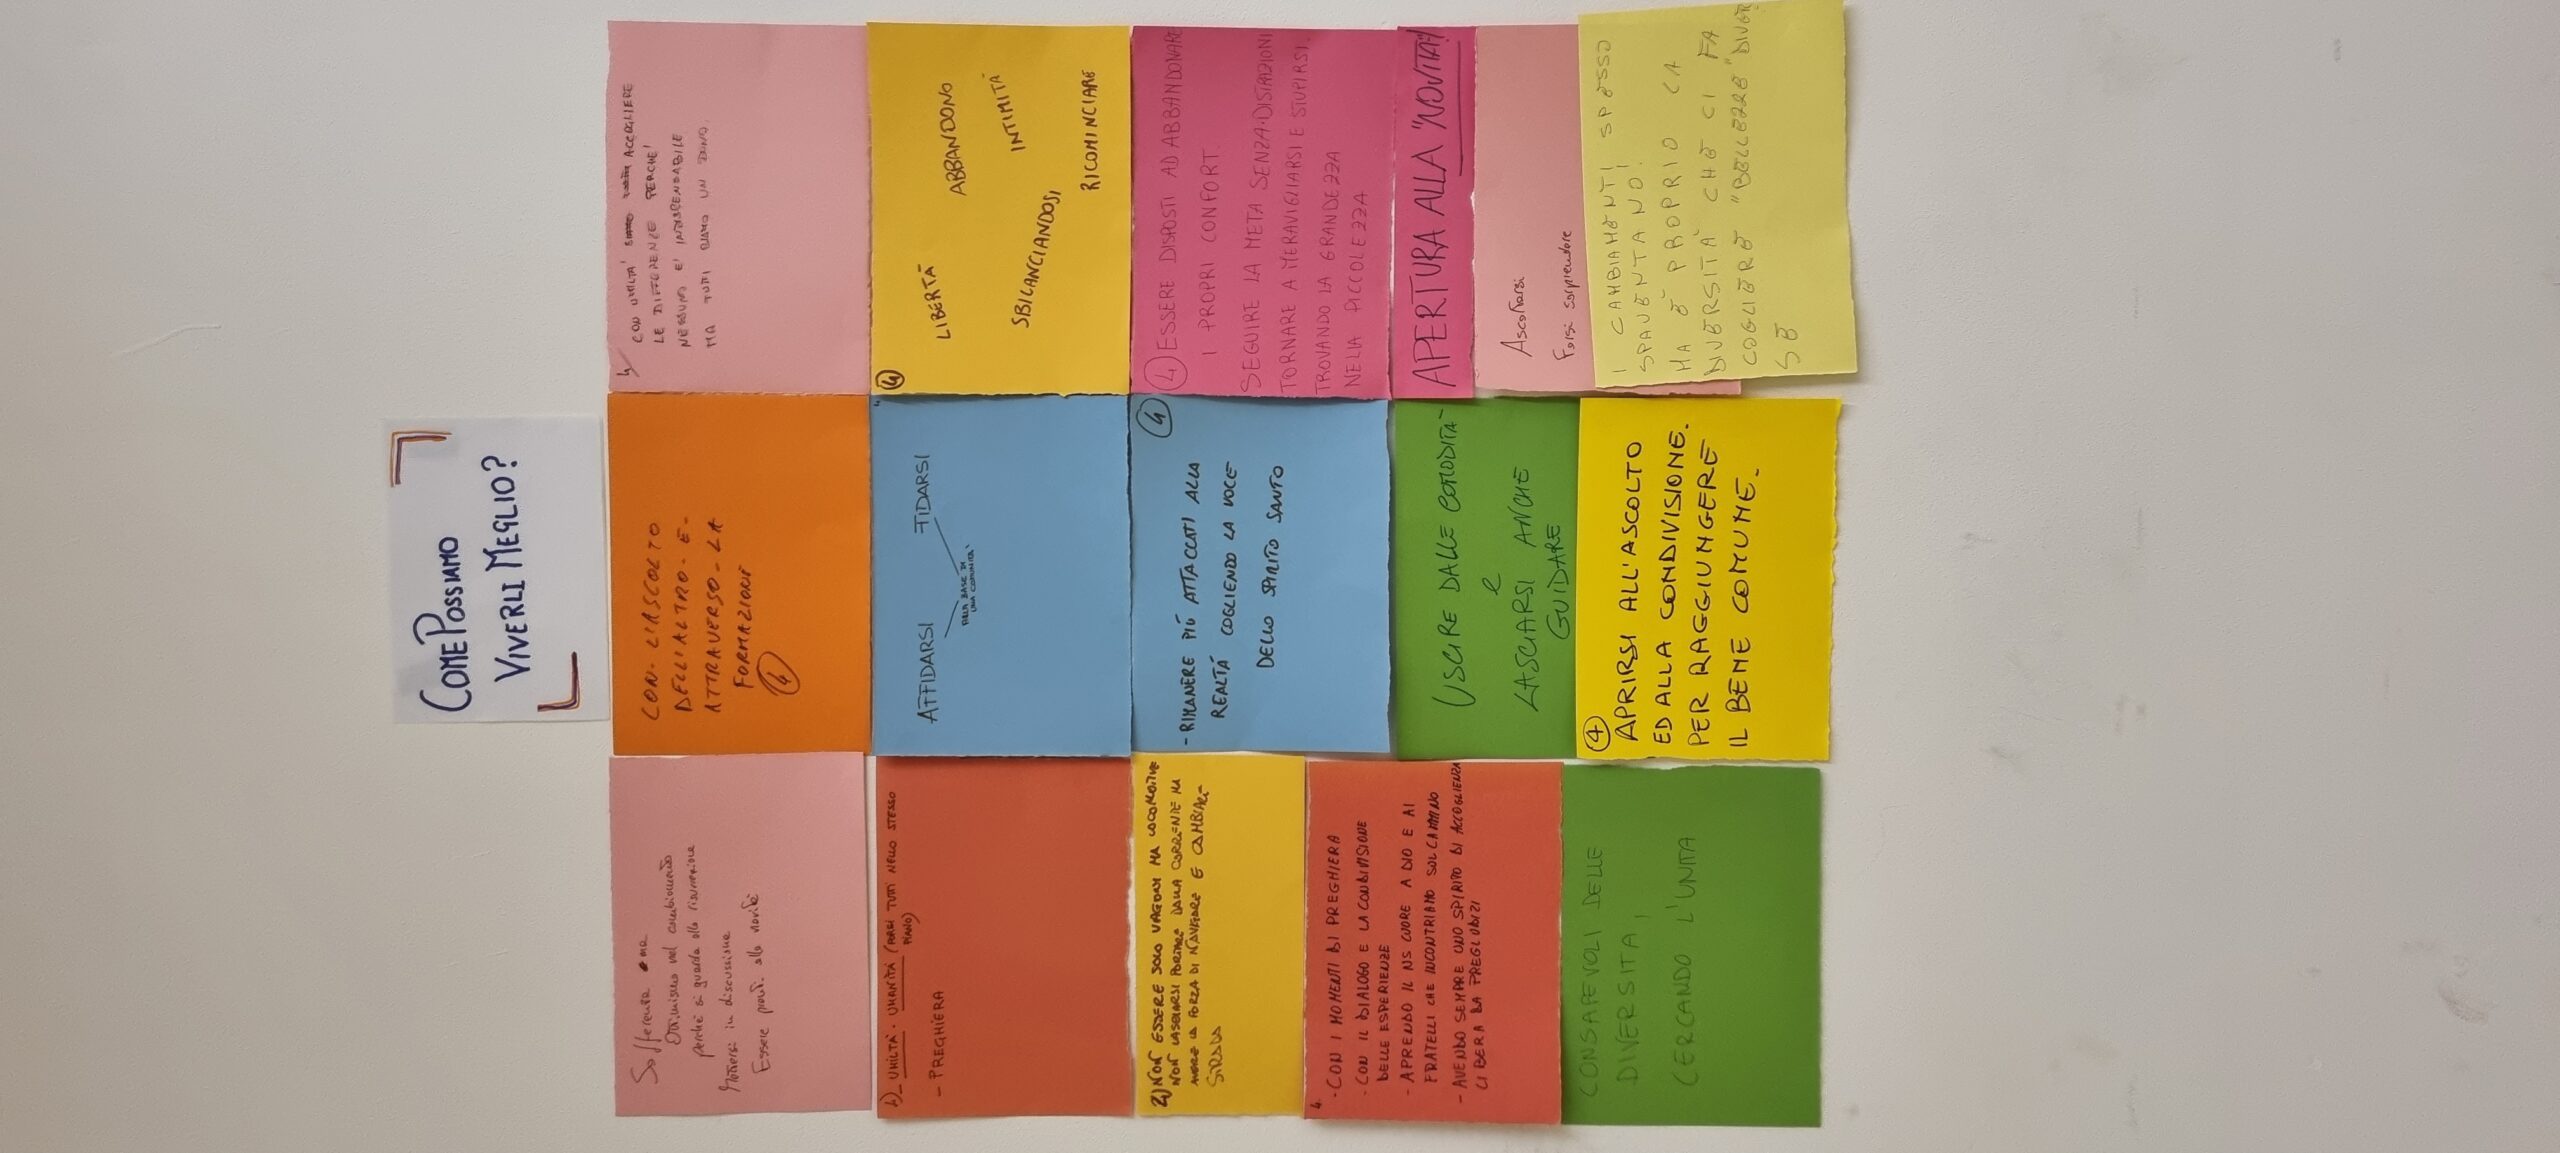 COME POSSIAMO
VIVERLI MEGLIO?
Sofferenza ma
Ottimismo nel cambiamento
perché si guarda alla risurrezione
Mettersi in discussione
Essere pronti alla novità
CON L'ASCOLTO
DELL'ALTRO E
ATTRAVERSO LA
FORMAZIONE
4
4
CON UMILTA' ACCOGLIERE
LE DIFFERENZE PERCHE'
NESSUNO E' INDISPENSABILE
MA TUTTI SIAMO UN DONO.
4)_ UMILTÀ - UMANITÀ (PORSI TUTTI NELLO STESSO
PIANO)
- PREGHIERA
AFFIDARSI FIDARSI
ALLA BASE DI
UNA COMUNITA'
4
LIBERTÀ ABBANDONO
SBILANCIANDOSI INTIMITÀ
RICOMINCIARE
2) NON ESSERE SOLO VAGONI MA LOCOMOTIVE
NON LASCIARSI PORTARE DALLA CORRENTE MA
AVERE LA FORZA DI E CAMBIARE
STRADA
4
- RIMANERE PIÙ ATTACCATI ALLA
REALTÀ COGLIENDO LA VOCE
DELLO SPIRITO SANTO
4 ESSERE DISPOSTI AD ABBANDONARE
I PROPRI CONFORT.
SEGUIRE LA META SENZA DISTRAZIONI
TORNARE A MERAVIGLIARSI E STUPIRSI.
TROVANDO LA GRANDEZZA
NELLA PICCOLEZZA
4.
- CON I MOMENTI DI PREGHIERA
- CON IL DIALOGO E LA CONDIVISIONE
DELLE ESPERIENZE
- APRENDO IL NS CUORE A DIO E AI
FRATELLI CHE INCONTRIAMO SUL CAMMINO
- AVENDO SEMPRE UNO SPIRITO DI ACCOGLIENZA
LIBERA DA PREGIUDIZI
USCIRE DALLE COMODITA-
e
LASCIARSI ANCHE
GUIDARE
APERTURA ALLA "NOVITÀ"
Ascoltarsi
Farsi sorprendere
CONSAPEVOLI DELLE
DIVERSITA,
CERCANDO L'UNITA
4
APRIRSI ALL'ASCOLTO
ED ALLA CONDIVISIONE.
PER RAGGIUNGERE
IL BENE COMUNE.
I CAMBIAMENTI SPESSO
SPAVENTANO!
MA È PROPRIO LA
DIVERSITÀ CHE CI FA
COGLIERE "BELLEZZE" DIVER
SE